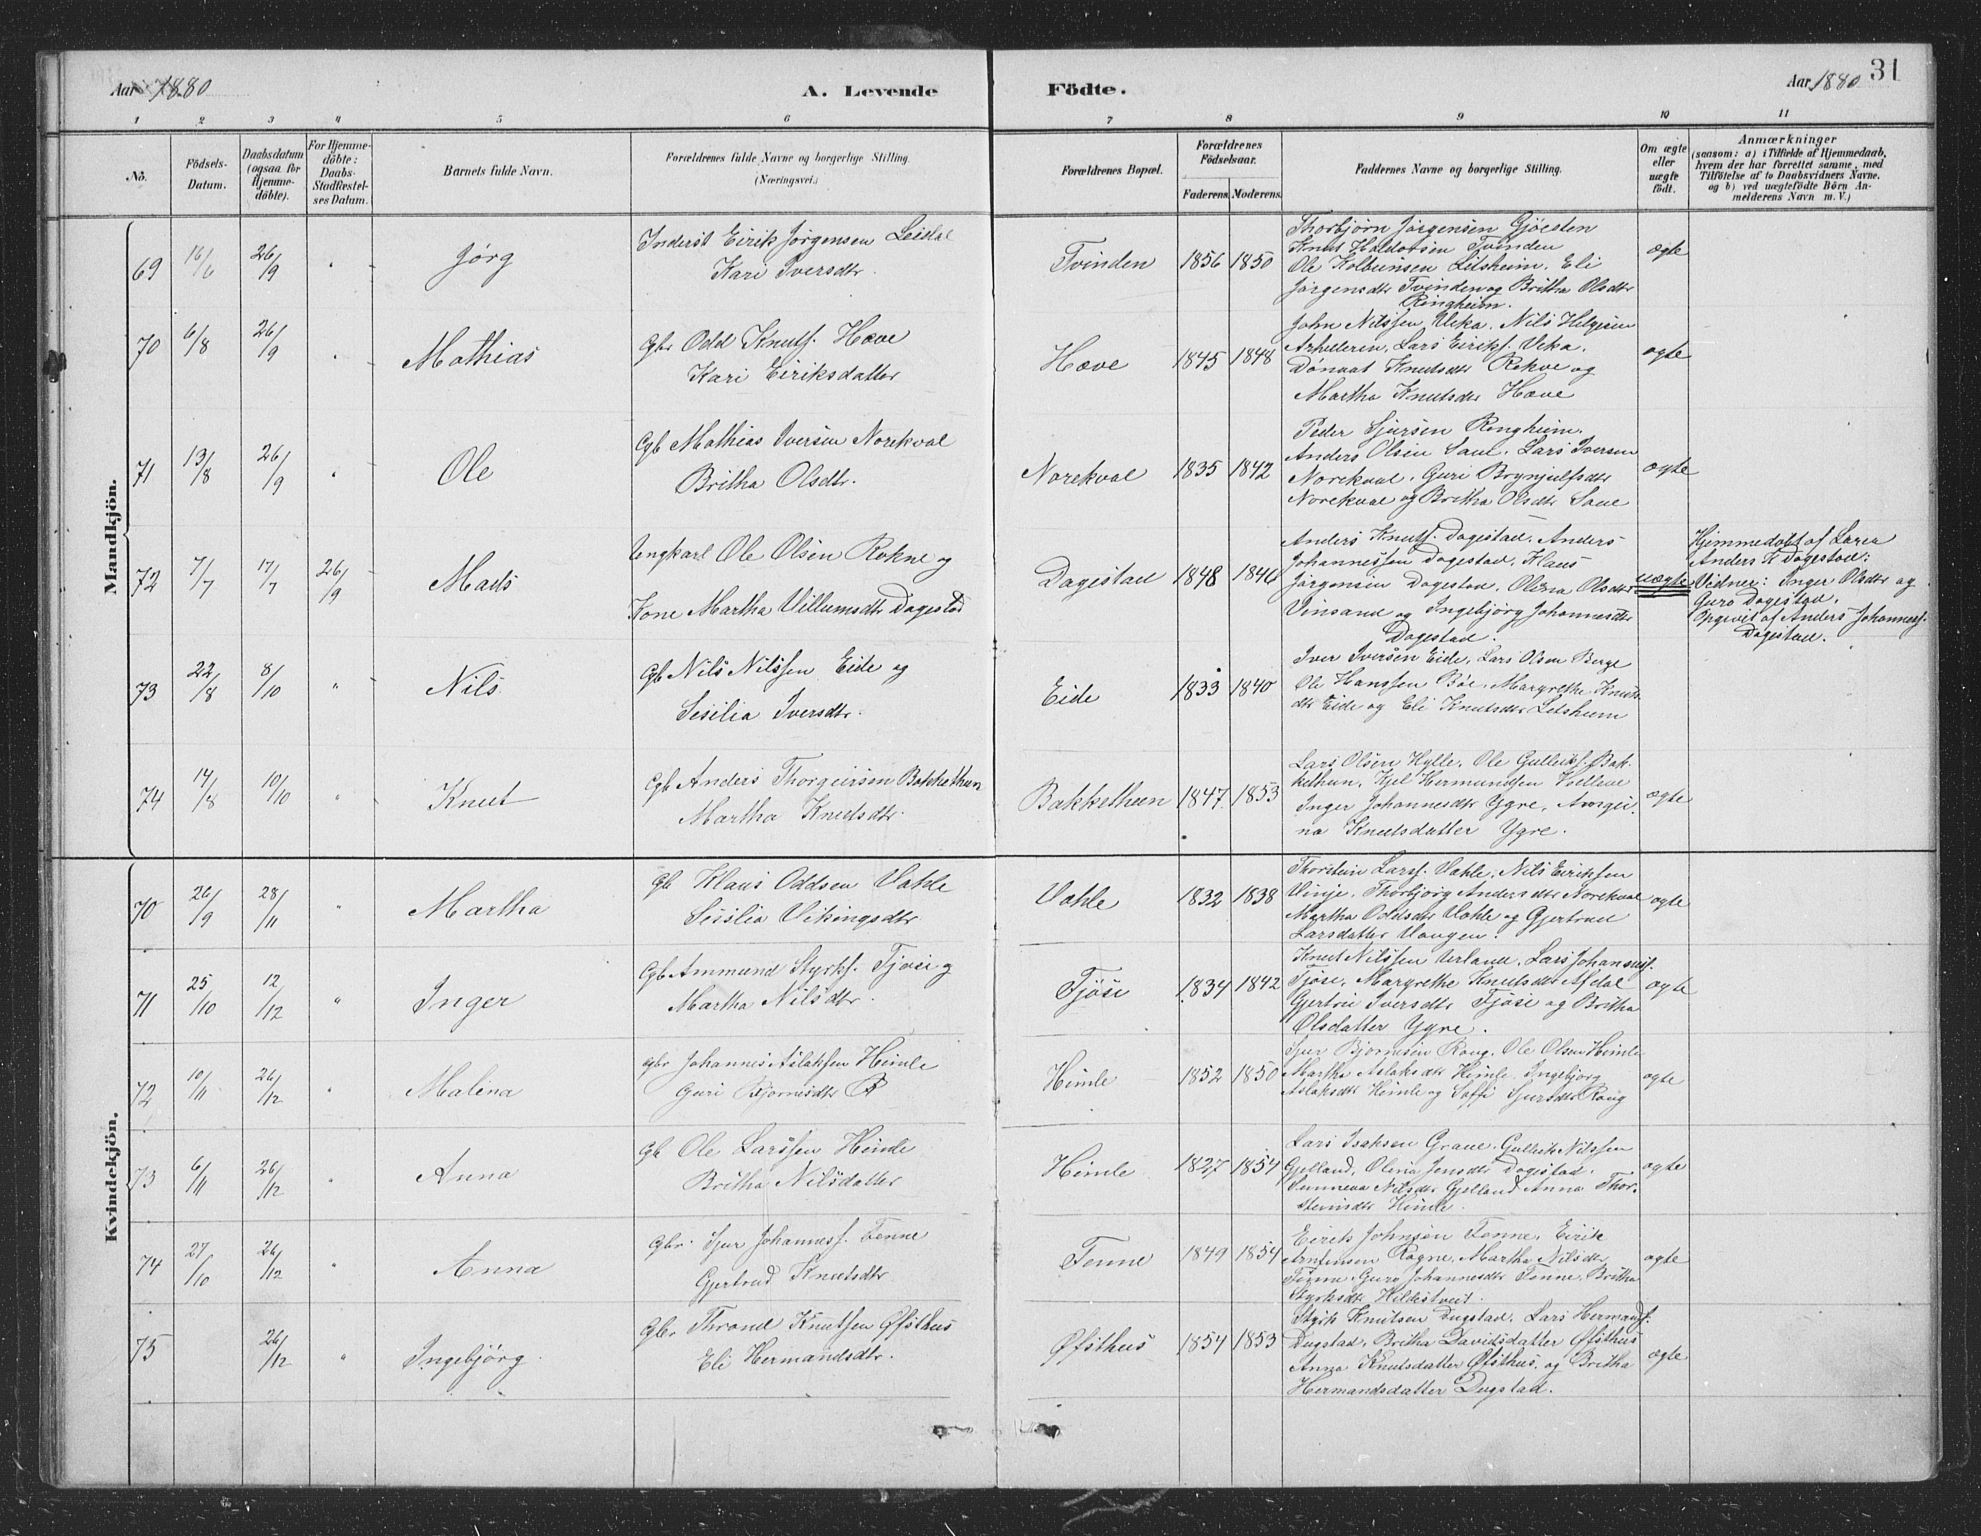 Aar 1880
A. Levende
Födte.
Aar 1880
31
1 2 3 4 5 6 7 8 9 10 11
No.
Födsels-
Datum.
Daabsdatum
(ogsaa for
Hjemme-
döbte).
For Hjemme-
döbte:
Daabs-
Stadfæstel-
ses Datum.
Barnets fulde Navn.
Forældrenes fulde Navne og borgerlige Stilling.
(Næringsvei.)
Forældrenes Bopæl.
Forældrenes
Födselsaar.
Faderens. Moderens.
Faddernes Navne og borgerlige Stilling.
Om ægte
eller
uægte
födt.
Anmærkninger
(saasom: a) i Tilfælde af Hjemmedaab,
hvem der har forrettet samme, med
Tilföielse af to Daabsvidners Navne,
og b) ved uægtefödte Börn An-
melderens Navn m. V.)
Mandkjön.
69 16/6 26/9 " Jörg
Inderst Eirik Jörgensen
Kari Iversdtr.
Tvinden 1856 1850
Thorbjörn Jörgensen Gjösten
Knut Haldorsen Tvinden
Ole Kolbeinsen Litsheim. Eli
Jörgensdtr Tvinden og Britha Olsdtr
Ringheim.
ægte
70 6/8 26/9 " Mathias
Gbr Odd Knuts. Hæve
Kari Eiriksdatter
Hæve 1845 1848
John Nilssen Veka. Nils Helgesen
Lars Eiriks. Veka.
Knutsdtr Rekve og
Martha Knutsdtr Hæve
ægte
71 13/8 26/9 " Ole
Gb Mathias Iversen Norekval
Britha Olsdtr.
Norekval 1835 1842
Peder Sjursen Ringheim.
Anders Olsen Saue. Lars Iversen
Norekval. Guri Brynjulfsdtr
Norekval og Britha Olsdtr Saue
ægte
72 7/7 17/7 26/9 Mads
Ungkarl Ole Olsen Rokne og
Kone Martha Villumsdtr Dagestad
Dagestad 1848 1846
Anders Knuts. Dagestad. Anders
Johannessen Dagestad. Klaus
Jörgensen Dagestad. Olena Olsdtr
Vinsand og Ingebjörg Johannesdtr
Dagestad.
uægte
Hjemmedöbt af Lærer
Anders K Dagestad:
Vidner: Inger Olsdtr og
Guro Dagestad.
Opgivet af Anders Johanness.
Dagestad.
73 22/8 8/10 " Nils.
Gb Nils Nilssen Eide og
Sesilia Iversdtr.
Eide 1833 1840
Iver Iversen Eide. Lars Olsen Berge
Ole Hanssen Böe. Margrethe Knuts-
dtr Eide og Eli Knutsdtr Litsheim
74 14/8 10/10 " Knut
Gb Anders Thorgeirsen Bakkethun
Martha Knutsdtr.
Bakkethun 1847 1853
Lars Olsen Hylle. Ole Gulleiks. Bak-
kethun. Kjel Hermundsen
Inger Johannesdtr Ygre.
na Knutsdatter Ygre.
ægte
Kvindekjön.
70 26/9 28/11 " Martha
Gb Klaus Oddsen Vahle
Sisilia Vikingsdtr
Vahle 1832 1838
Thorstein Larss. Vahle. Nils Eiriksen
Vinje. Thorbjörg Andersdtr Norekval
Martha Oddsdtr Vahle og Gjertrud
Larsdatter Vangen.
ægte
71 25/10 12/12 " Inger
Gb Ammund Styrks. Tjöse og
Martha Nilsdtr.
Tjöse 1834 1842
Knut Nilssen Lars Johanness.
Tjöse. Margrethe Knutsdtr Afdal
Gjertru Iversdtr Tjöse og Britha
Olsdatter Ygre.
ægte
72 10/11 26/12 " Malena
Gbr Johannes Aslaksen Himle
Guri Bjornesdtr
Himle 1852 1850
Sjur Bjornesen Rong. Ole Olsen Himle
Martha Aslaksdtr Himle. Ingebjörg
Aslaksdtr Himle og Soffi Sjursdtr Rong
ægte
73 6/11 26/12 " Anna
Gb Ole Larssen Himle
Britha Nilsdatter
Himle 1827 1854
Lars Isaksen Graue. Gulleik Nilssen
Gjelland. Olena Jensdtr Dagestad.
Sunneva Nilsdtr Gjelland. Anna Thor-
steinsdtr Himle.
ægte
74 27/10 26/12 " Anna
Gbr. Sjur Johanness. Tenne
Gjertrud Knutsdtr
Tenne 1849 1854
Eirik Johnsen Tenne. Eirik
Arnfinsen Rogne. Martha Nilsdtr
Tenne. Guro Johannesdtr Tenne. Britha
Styrksdtr Hildestveit.
ægte
75 26/12 " Ingebjörg.
Gbr Thrond Knutsen Øfsthus
Eli Hermandsdtr.
Øfsthus 1854 1853
Styrk Knutsen Dugstad. Lars Hermands.
Dugstad. Britha Davidsdatter Øfsthus
Anna Knutsdatter Øfsthus. og Britha
Hermandsdatter Dugstad.
ægte